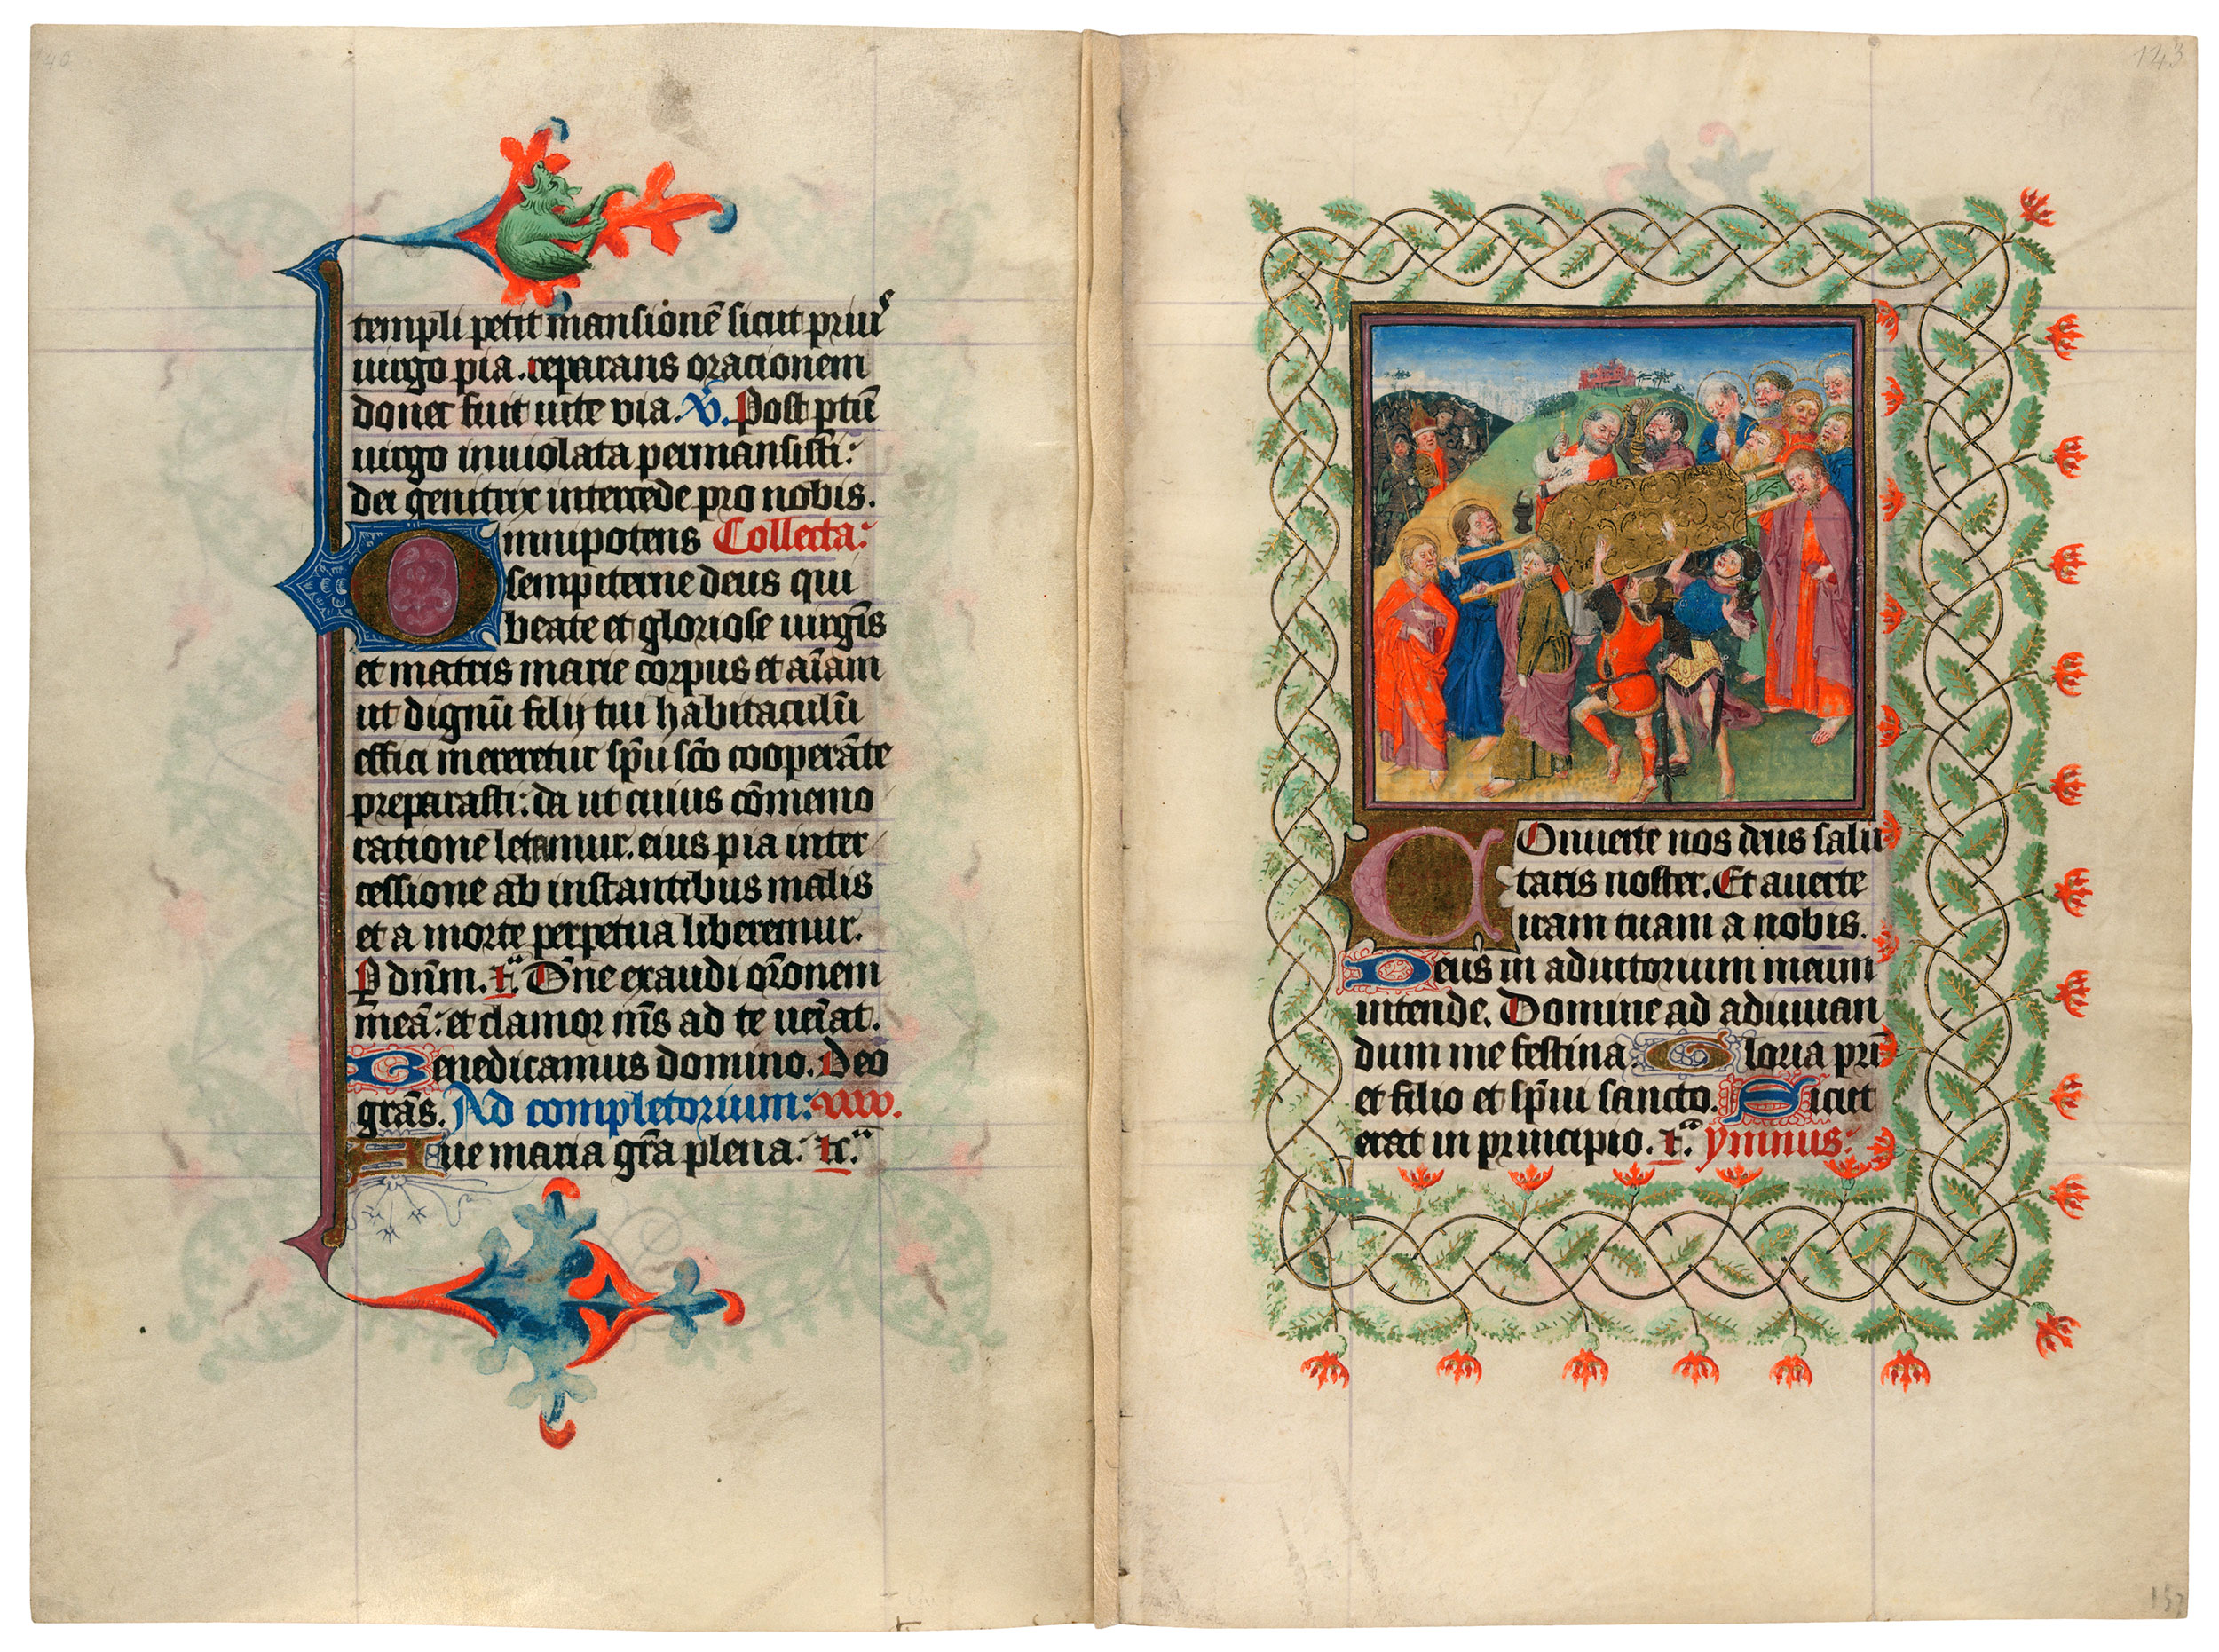 40
templi petit mansionē sicut priuˢ
uirgo pia . reparans oracionem
donec fuit uite via . V̄. Post ptū
uirgo inuiolata permansisti :
dei genitrix intercede pro nobis .
Omnipotens Collecta :
sempiterne deus qui
beate et gloriose uirgīs
et matris marie corpus et aīam
ut dignū filij tui habitaculū
effici mereretur sp̄u sc̄o cooperāte
preparasti : da ut cuius cōmemo
ratione letamur . eius pia inter
cessione ab instantibus malis
et a morte perpetua liberemur .
P dn̄m . rᵃ. Dn̄e exaudi or̄onem
meā : et clamor m̄s ad te ueīat .
Benedicamus domino . Deo
grās . Ad completorium :
Aue maria gr̄a plena : tcᵃ
143
Conuerte nos deus salu
taris noster . Et auerte
iram tuam a nobis .
Deus in adiutorium meum
intende . Domine ad adiuuan
dum me festina . Gloria pr̄i
et filio et sp̄iu sancto . Sicut
erat in principio . tᵃ. ymnus :
157